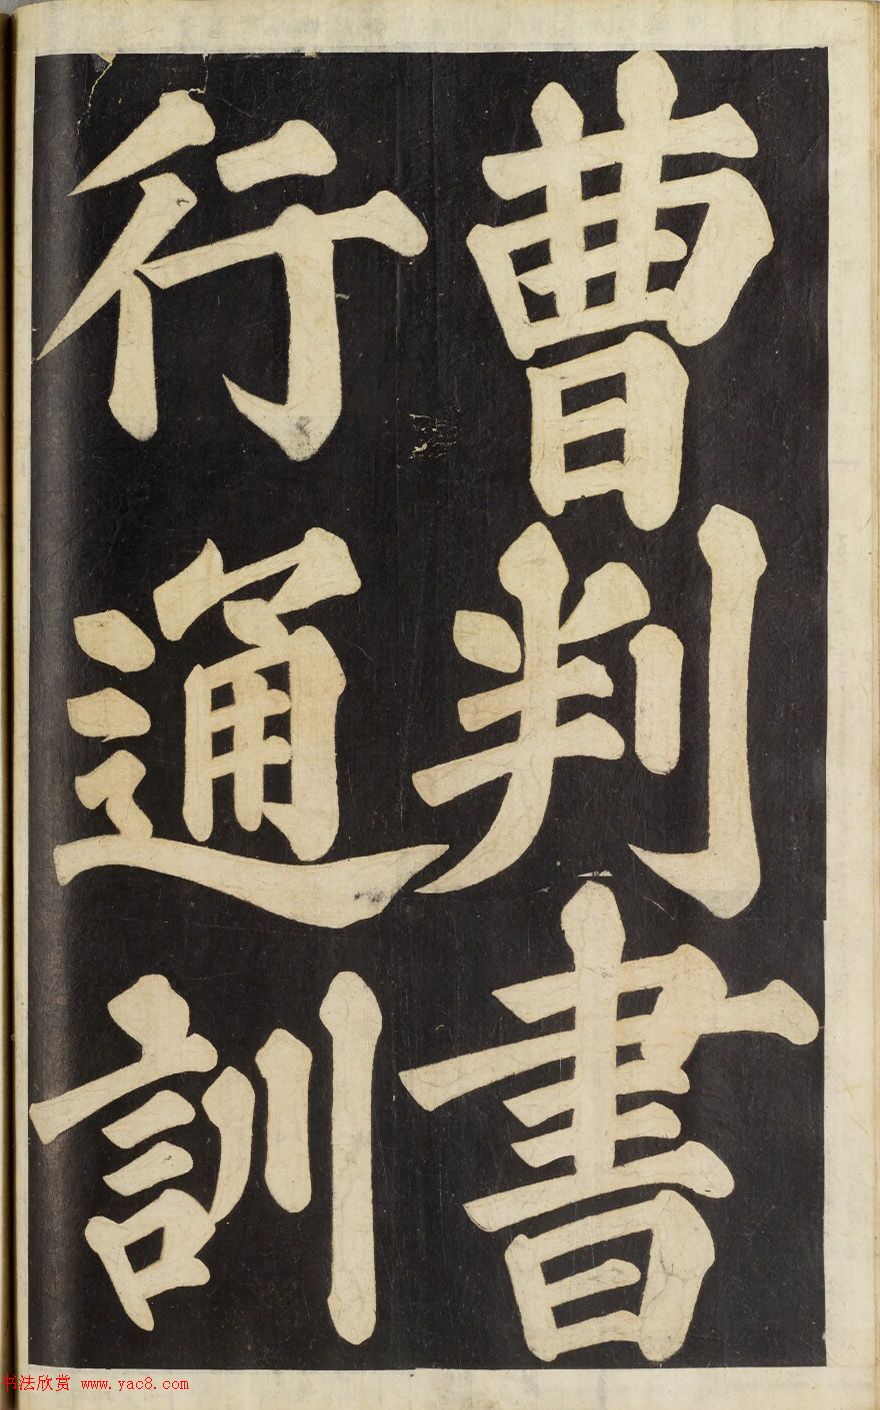 曹判書
行通訓
书法欣赏 www.yac8.com